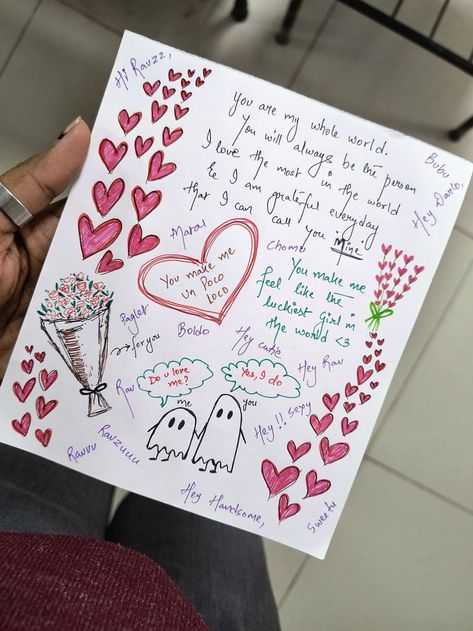 Hi Ravzz,
You are my whole world.
You will always be the person
I love the most in the world
& I am grateful everyday
that I can call you
Mine
Bubu
Hey Darlo!
Maral
Chome
You make me
Un Poco
loco
You make me
feel like the
luckiest girl in
the world <3
Paglet
→ for you
Boldo
Hey cutie
Hey Rav
Do u love
me?
Yes, I do
me
you
Rav
Hey!! Sexy
Ravuu
Ravzuuu
Hey Handsome,
Sweetu